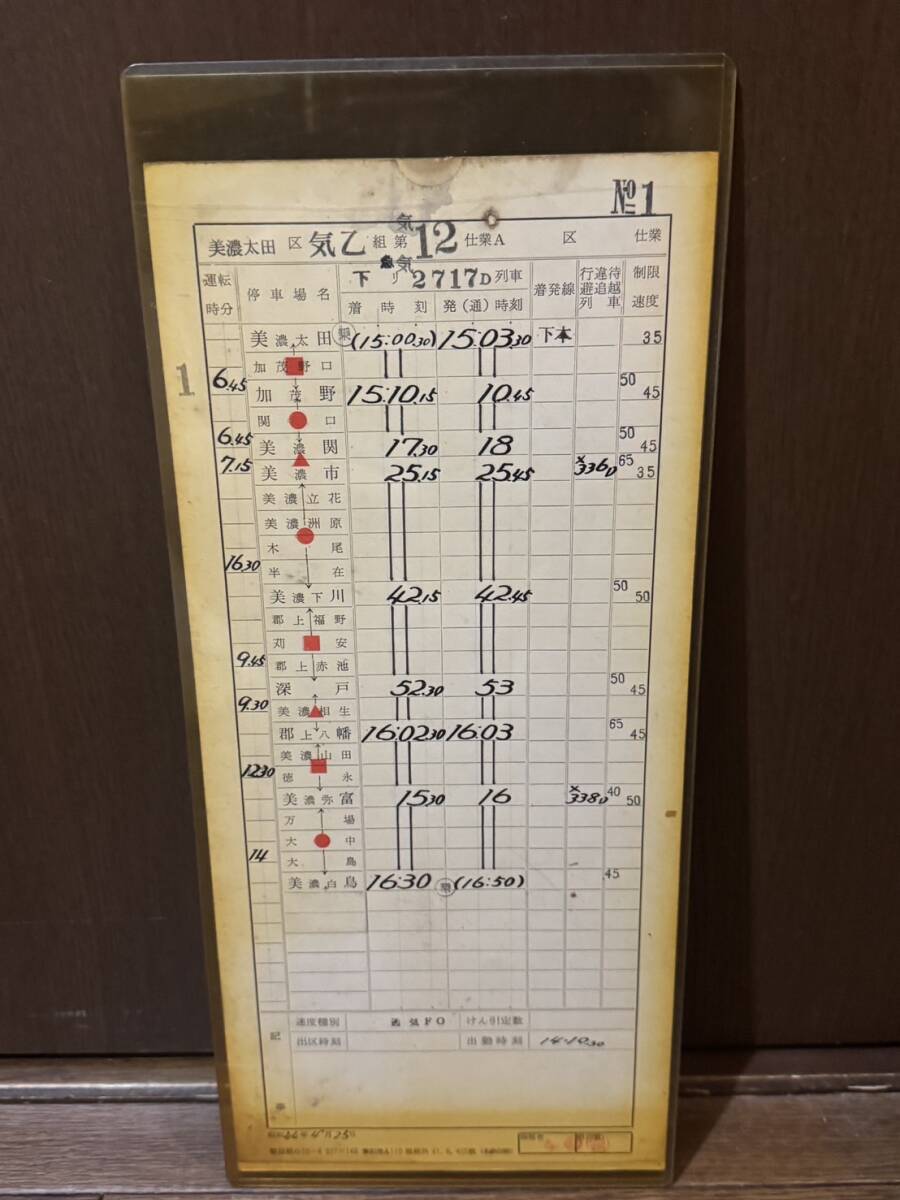 №1
美濃太田 区 気乙 組 第 気 12 仕業A 区 仕業
運転時分 停車場名 下り 急気 2717D 列車 着発線 行違待避追越列車 制限速度
着時刻 発(通)時刻
美濃太田 (15:00.30) 15:03.30 下本 35
加茂野口
1 6.45 50
加茂野 15:10.15 10.45 45
関口
6.45 50
美濃関 17.30 18 45
7.15 65
美濃市 25.15 25.45 ×336D 35
美濃立花
美濃洲原
木尾
16.30
半在
50
美濃下川 42.15 42.45 50
郡上福野
苅安
9.45
郡上赤池
50
深戸 52.30 53 45
9.30
美濃相生
65
郡上八幡 16:02.30 16:03 45
美濃山田
12.30
徳永
40
美濃弥富 15.30 16 ×338D 50
万場
大中
14
大島
45
美濃白鳥 16:30 (16:50)
記事
速度種別 通気F0 けん引定数
出区時刻 出勤時刻 14:10.30